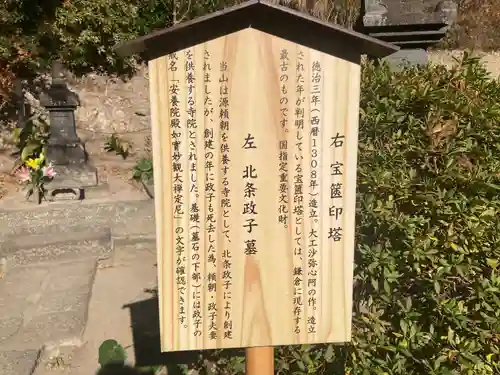 右 宝篋印塔
徳治三年(西暦1308年)造立。大工沙弥心阿の作。造立
された年が判明している宝篋印塔としては、鎌倉に現存する
最古のものです。国指定重要文化財。
左 北条政子墓
当山は源頼朝を供養する寺院として、北条政子により創建
されましたが、創建の年に政子も死去した為、頼朝・政子夫妻
を供養する寺院とされました。基礎(墓石の下部)には政子の
戒名「安養院殿如實妙観大禅定尼」の文字が確認できます。